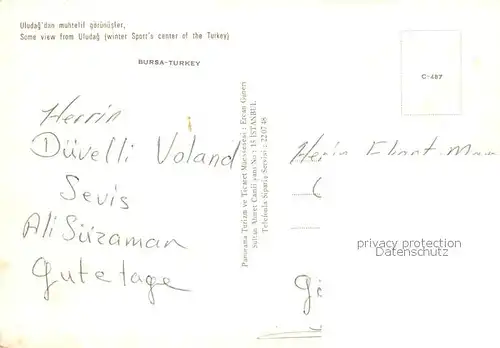 Uludağ'dan muhtelif görünüşler,
Some view from Uludağ (winter Sport's center of the Turkey)
BURSA-TURKEY
C-487
Herrin
Düvelli Voland
Sevis
Ali Süzaman
gutetage
Panorama Turizm ve Ticaret Müessesesi : Ercan Güneri
Sultan Ahmet Camii yanı No : 15 İSTANBUL
Telefonla Sipariş Servisi : 22 07 48
privacy protection
Datenschutz